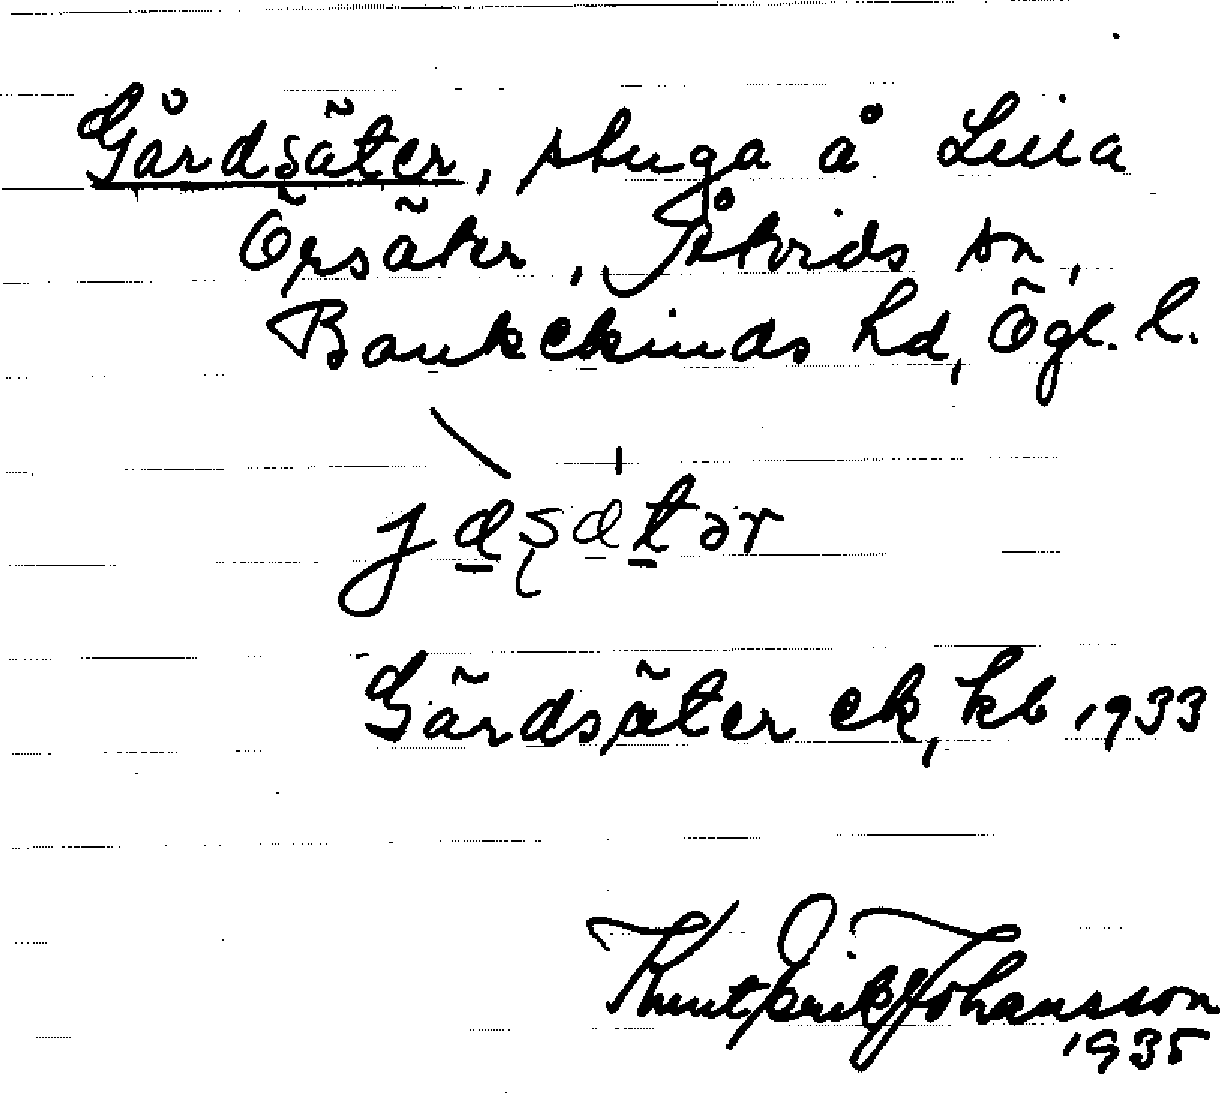 Gårdsäter, stuga å Lilla
Örsäter, Åtvids sn,
Bankekinds hd, Ögl. l.
Gärdsäter ck, kb 1933
Knut Erik Johansson
1935